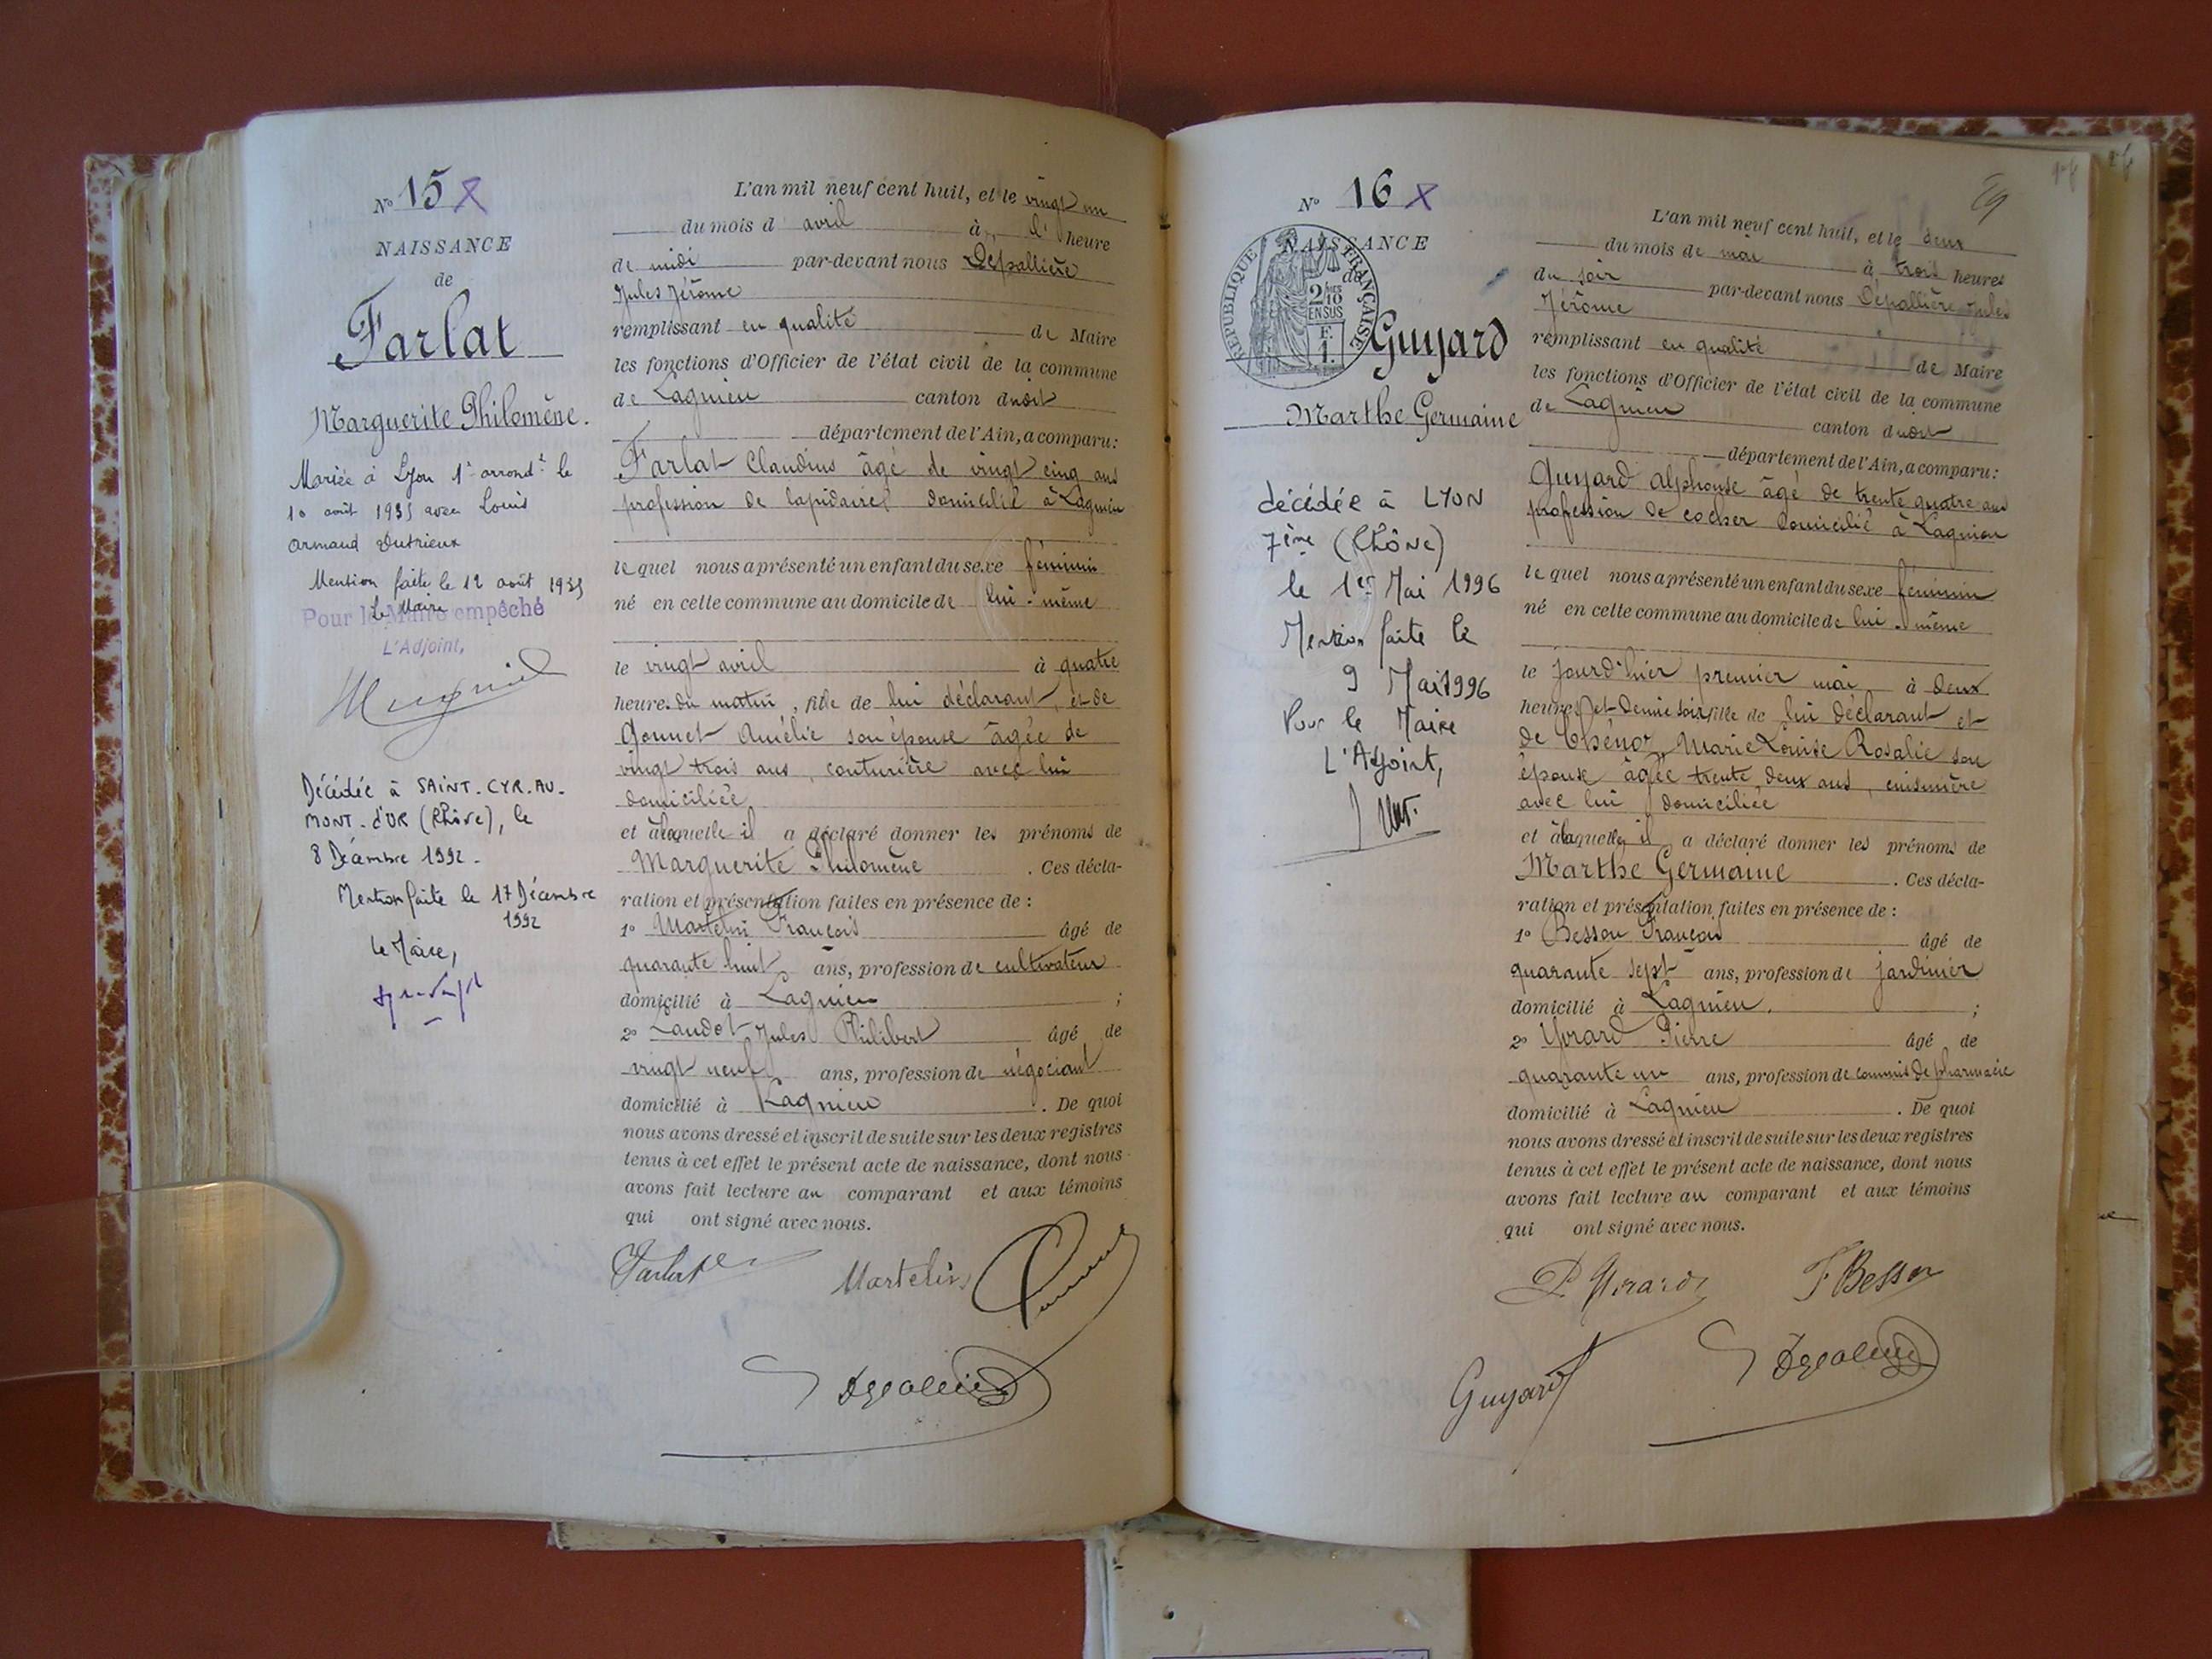 N° 15 X
NAISSANCE
de
Farlat
Marguerite Philomène.
Mariée à Lyon 1er arrondt le
10 août 1935 avec Louis
Armand Dutrieux
Mention faite le 12 août 1935
Le Maire
Pour le Maire empêché
L'Adjoint,
Décédée à SAINT-CYR-AU-
MONT-d'OR (Rhône), le
8 Décembre 1992-
Mention faite le 17 Décembre
1992
Le Maire,
L'an mil neuf cent huit, et le vingt un
du mois d avril à l' heure
de midi par-devant nous Dépallière
Jules Jérôme
remplissant en qualité de Maire
les fonctions d'Officier de l'état civil de la commune
de Lagnieu canton dudit
département de l'Ain, a comparu:
Farlat Claudius âgé de vingt cinq ans
profession de lapidaire, domicilié à Lagnieu
le quel nous a présenté un enfant du sexe féminin
né en cette commune au domicile de lui-même
le vingt avril à quatre
heures du matin, fille de lui déclarant, et de
Gonnet Amélie son épouse âgée de
vingt trois ans, couturière avec lui
domiciliée
et à laquelle il a déclaré donner les prénoms de
Marguerite Philomène. Ces décla-
ration et présentation faites en présence de:
1° Martelin François âgé de
quarante huit ans, profession de cultivateur
domicilié à Lagnieu;
2° Landot Jules Philibert âgé de
vingt neuf ans, profession de négociant
domicilié à Lagnieu. De quoi
nous avons dressé et inscrit de suite sur les deux registres
tenus à cet effet le présent acte de naissance, dont nous
avons fait lecture au comparant et aux témoins
qui ont signé avec nous.
Farlat Cl Martelin
Dépallière
N° 16 X
NAISSANCE
de
RÉPUBLIQUE FRANÇAISE
2/10
EN SUS
F.
1.
Guyard
Marthe Germaine
décédée à LYON
7ème (Rhône)
le 1er Mai 1996
Mention faite le
9 Mai 1996
Pour le Maire
L'Adjoint,
L'an mil neuf cent huit, et le deux
du mois de mai à trois heures
du soir par-devant nous Dépallière Jules
Jérôme
remplissant en qualité de Maire
les fonctions d'Officier de l'état civil de la commune
de Lagnieu canton dudit
département de l'Ain, a comparu:
Guyard Alphonse âgé de trente quatre ans
profession de cocher domicilié à Lagnieu
le quel nous a présenté un enfant du sexe féminin
né en cette commune au domicile de lui-même
le jourd'hier premier mai à deux
heures et demie soir fille de lui déclarant et
de Thénoz Marie Louise Rosalie son
épouse âgée trente deux ans, cuisinière
avec lui domiciliée
et à laquelle il a déclaré donner les prénoms de
Marthe Germaine. Ces décla-
ration et présentation faites en présence de:
1° Besson François âgé de
quarante sept ans, profession de jardinier
domicilié à Lagnieu.;
2° Girard Pierre âgé de
quarante un ans, profession de commis de pharmacie
domicilié à Lagnieu. De quoi
nous avons dressé et inscrit de suite sur les deux registres
tenus à cet effet le présent acte de naissance, dont nous
avons fait lecture au comparant et aux témoins
qui ont signé avec nous.
P. Girard F Besson
Guyard Dépallière